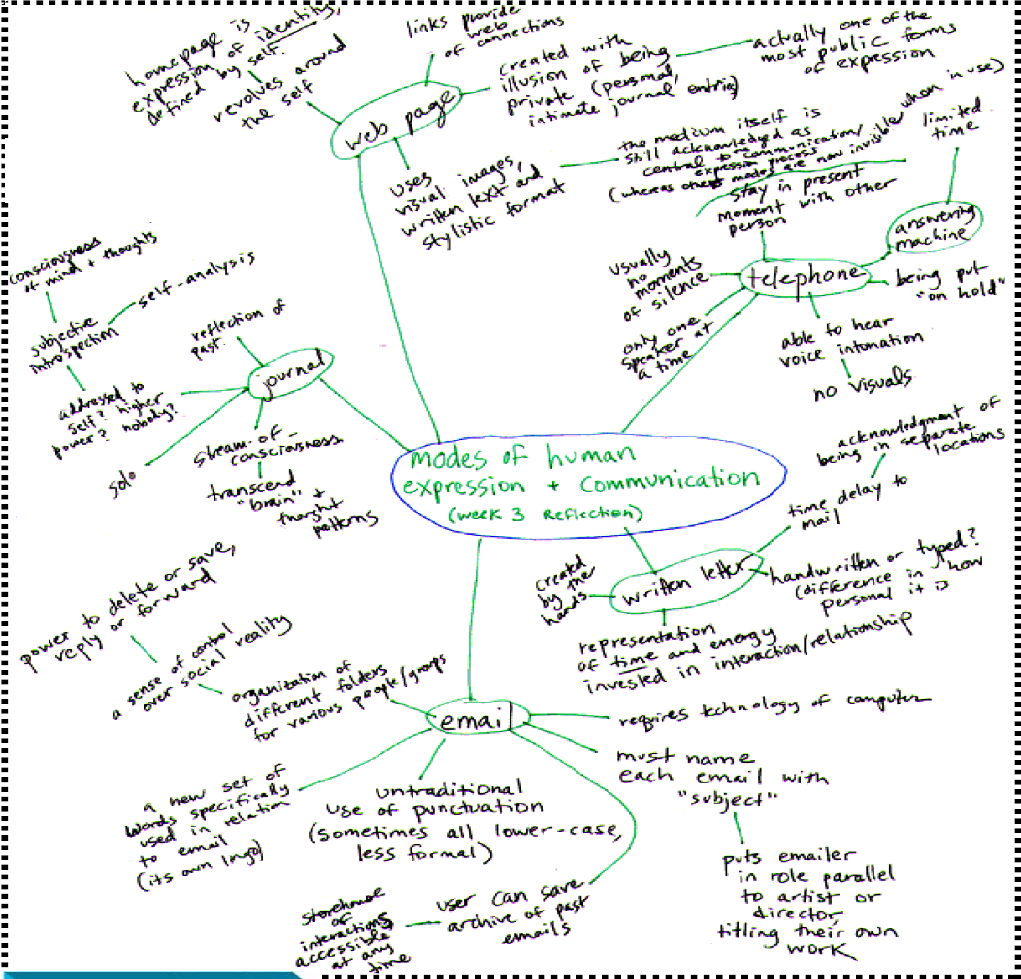 homepage is
expression of identity,
defined by self.
revolves around
the self
links provide
web
of connections
web page
created with
illusion of being
private (personal,
intimate journal entries)
actually one of the
most public forms
of expression
uses
visual images,
written text and
stylistic format
the medium itself is
still acknowledged as
central to communication/
expression process
(whereas other modes are now invisible when in use)
limited
time
answering
machine
stay in present
moment with other
person
telephone
being put
"on hold"
usually
no
moments
of silence
only one
speaker at
a time
able to hear
voice intonation
no visuals
consciousness
of mind + thoughts
self-analysis
subjective
introspection
reflection of
past.
journal
addressed to
self? higher
power? nobody?
solo
stream-of-
consciousness
transcend
"brain" +
thought
patterns
modes of human
expression + communication
(week 3 Reflection)
acknowledgment of
being in separate
locations
time delay to
mail
written letter
created
by the
hands
handwritten or typed?
(difference in how
personal it is
representation
of time and energy
invested in interaction/relationship
power to delete or save,
reply or forward
a sense of control
over social reality
organization of
different folders
for various people/groups
email
requires technology of computer
must name
each email with
"subject"
puts emailer
in role parallel
to artist or
director,
titling their own
work
a new set of
words specifically
used in relation
to email
(its own lingo)
untraditional
use of punctuation
(sometimes all lower-case,
less formal)
user can save
archive of past
emails
storehouse
of
interactions
accessible
at any
time